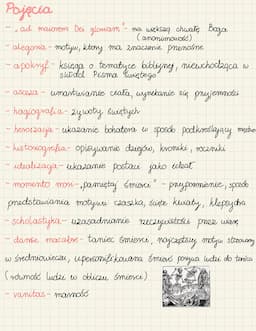 Pojęcia
- "ad maiorem Dei gloriam" - na większą chwałę Boga
(anonimowość)
- alegoria - motyw, który ma znaczenie przenośne
- apokryf - księga o tematyce biblijnej, niewchodząca w
skład Pisma Świętego
- asceza - umartwianie ciała, wyrzekanie się przyjemności
- hagiografia - żywoty świętych
- heroizacja - ukazanie bohatera w sposób podkreślający męstwo
- historiografia - opisywanie dziejów, kroniki, roczniki
- idealizacja - ukazanie postaci jako ideał
- momento mori - "pamiętaj śmierci" - przypomnienie, sposób
przedstawiania motywu: czaszka, świeże kwiaty, klepsydra
- scholastyka - uzasadnianie rzeczywistości przez wiarę
- danse macabre - taniec śmierci, najczęstszy motyw stosowany
w średniowieczu, upersonifikowana śmierć porywa ludzi do tańca
(równość ludzi w obliczu śmierci)
- vanitas - marność